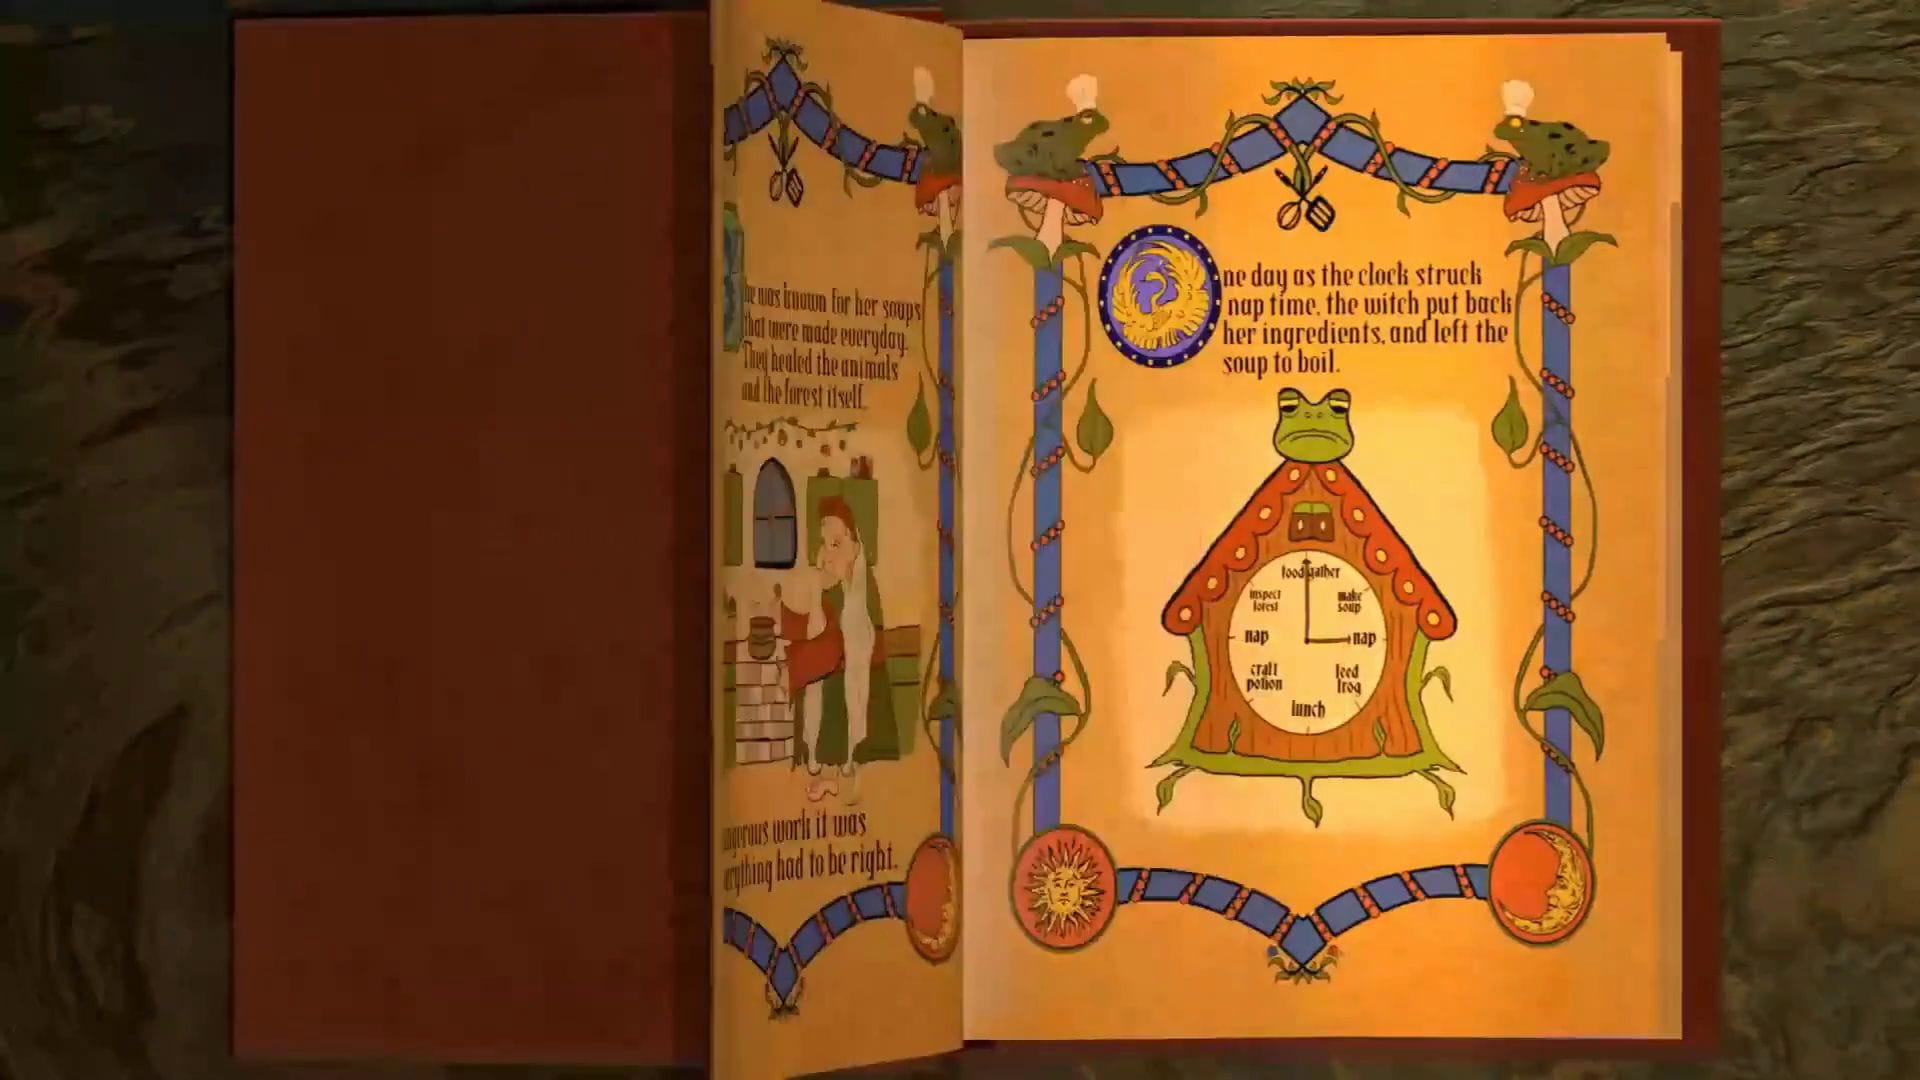 he was known for her soups
that were made everyday.
They healed the animals
and the forest itself.
work it was
had to be right.
One day as the clock struck
nap time, the witch put back
her ingredients, and left the
soup to boil.
food gather
inspect
forest
make
soup
nap
nap
craft
potion
feed
frog
lunch